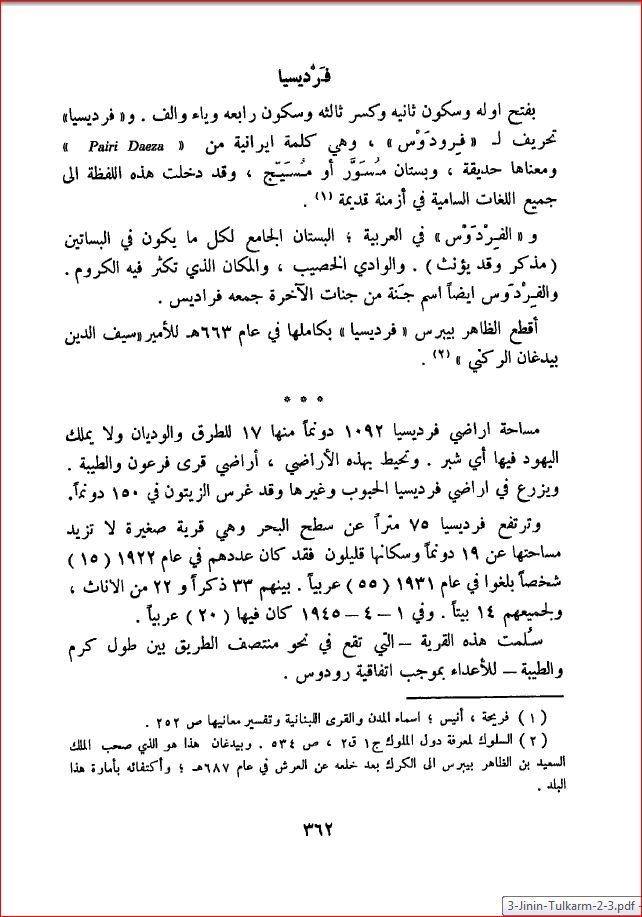 فَرْديسيا
بفتح اوله وسكون ثانيه وكسر ثالثه وسكون رابعه وياء والف . و« فرديسيا»
تحريف لـ « فِرودَوْس » ، وهي كلمة ايرانية من « Pairi Daeza »
ومعناها حديقة ، وبستان مُسَوَّر أو مُسَيَّج ، وقد دخلت هذه اللفظة الى
جميع اللغات السامية في أزمنة قديمة (١) .
و « الفِرْدَوْس » في العربية ؛ البستان الجامع لكل ما يكون في البساتين
( مذكر وقد يؤنث ) . والوادي الخصيب ، والمكان الذي تكثر فيه الكروم .
والفِرْدَوس ايضاً اسم جَنة من جنات الآخرة جمعه فراديس .
أقطع الظاهر بيبرس « فرديسيا » بكاملها في عام ٦٦٣هـ للأمير «سيف الدين
بيدغان الركني » (٢) .
* * *
مساحة اراضي فرديسيا ١٠٩٢ دونماً منها ١٧ للطرق والوديان ولا يملك
اليهود فيها أي شبر . وتحيط بهذه الأراضي ، أراضي قرى فرعون والطيبة .
ويزرع في اراضي فرديسيا الحبوب وغيرها وقد غرس الزيتون في ١٥٠ دونماً.
وترتفع فرديسيا ٧٥ متراً عن سطح البحر وهي قرية صغيرة لا تزيد
مساحتها عن ١٩ دونماً وسكانها قليلون فقد كان عددهم في عام ١٩٢٢ ( ١٥ )
شخصاً بلغوا في عام ١٩٣١ ( ٥٥ ) عربياً . بينهم ٣٣ ذكراً و ٢٢ من الاناث ،
ولجميعهم ١٤ بيتاً . وفي ١ – ٤ – ١٩٤٥ كان فيها ( ٢٠ ) عربياً .
سُلمت هذه القرية – التي تقع في نحو منتصف الطريق بين طول كرم
والطيبة – للأعداء بموجب اتفاقية رودوس .
( ١ ) فريحة ، أنيس ؛ اسماء المدن والقرى اللبنانية وتفسير معانيها ص ٢٥٢ .
( ٢ ) السلوك لمعرفة دول الملوك ج١ ق٢ ، ص ٥٣٤ . وبيدغان هذا هو الذي صحب الملك
السعيد بن الظاهر بيبرس الى الكرك بعد خلعه عن العرش في عام ٦٨٧هـ ؛ وأكتفائه بأمارة هذا
البلد .
٣٦٢
3-Jinin-Tulkarm-2-3.pdf